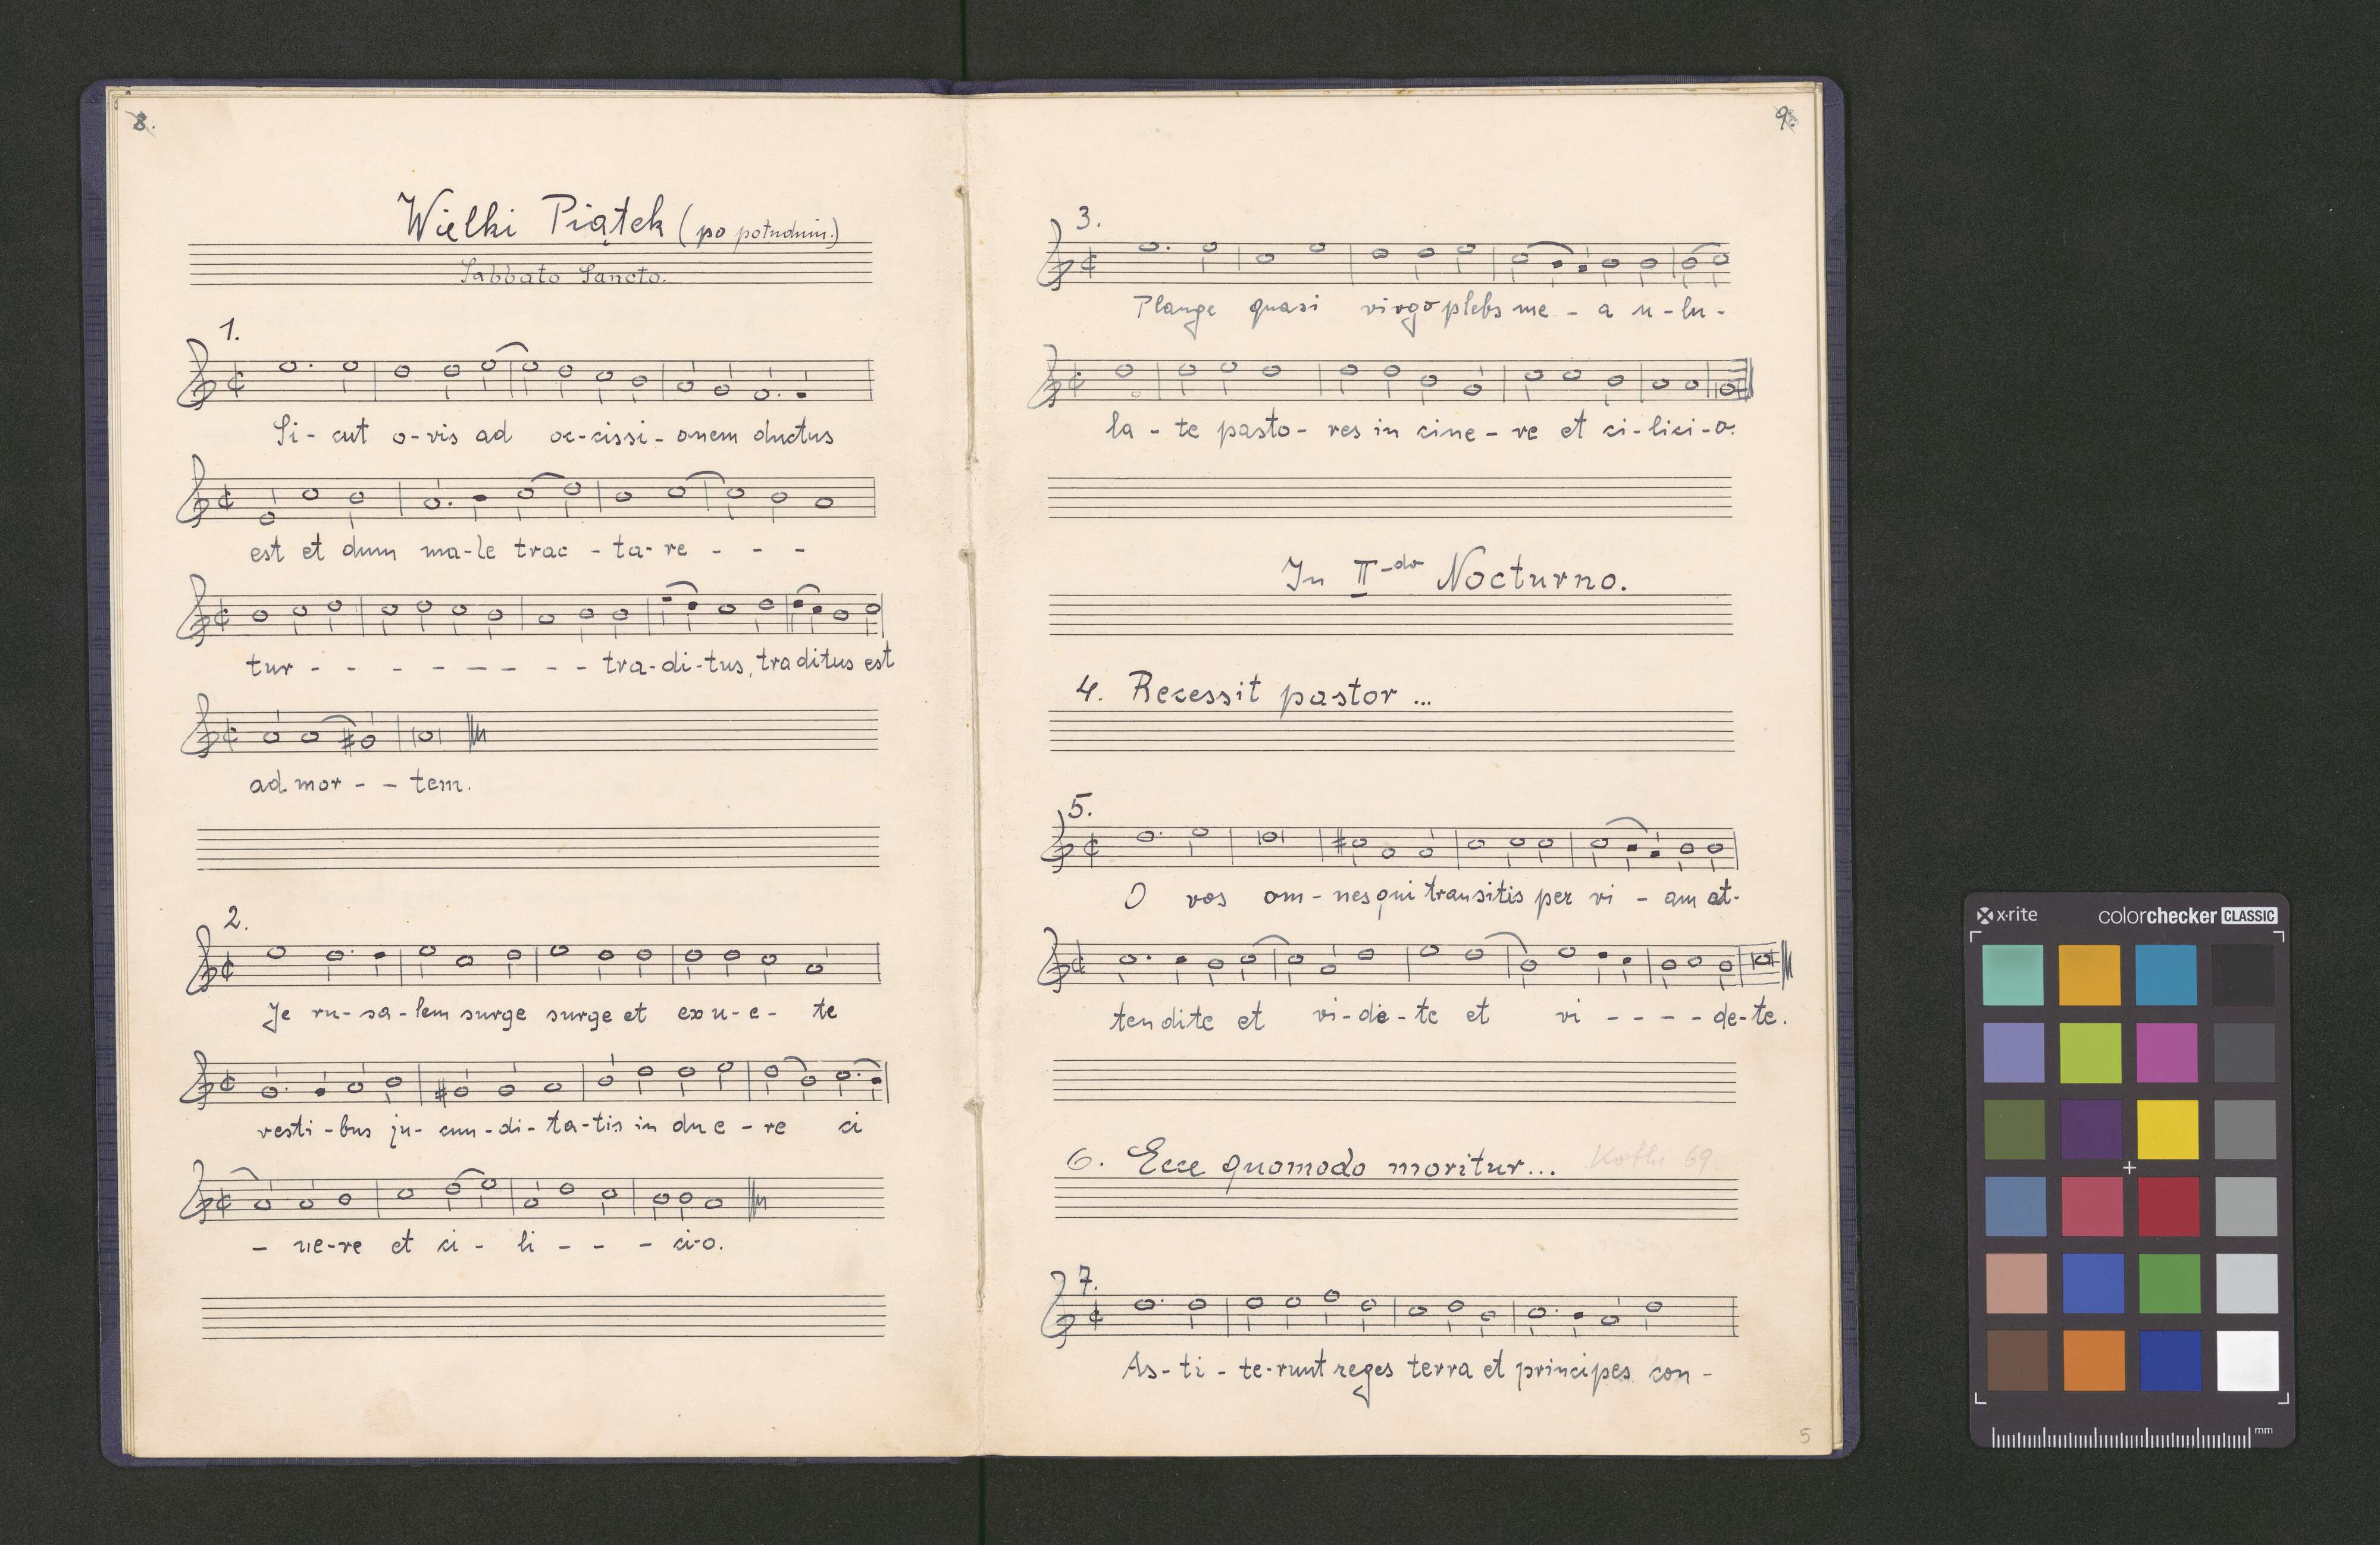 8.
Wielki Piątek (po południu.)
Sabbato Sancto.
1.
Si- cut o-vis ad oc-cissi- onem ductus
est et dum ma-le trac - ta- re - - -
tur - - - - - - - - tra-di-tus, traditus est
ad mor - - tem.
2.
Je ru-sa-lem surge surge et exu-e- te
vesti-bus ju- cun-di-ta-tis in du e - re ci
- ne-re et ci- li - - - ci-o.
9.
3.
Plange quasi virgo plebs me - a u-lu-
la - te pasto- res in cine-re et ci-lici-o.
In II-do Nocturno.
4. Recessit pastor ...
5.
O vos om-nes qui transitis per vi - am at-
tendite et vi-de-te et vi - - - - de-te.
6. Ecce quomodo moritur... Kothe 69
7.
As-ti-te-runt reges terra et principes con-
5
x-rite colorchecker CLASSIC
mm